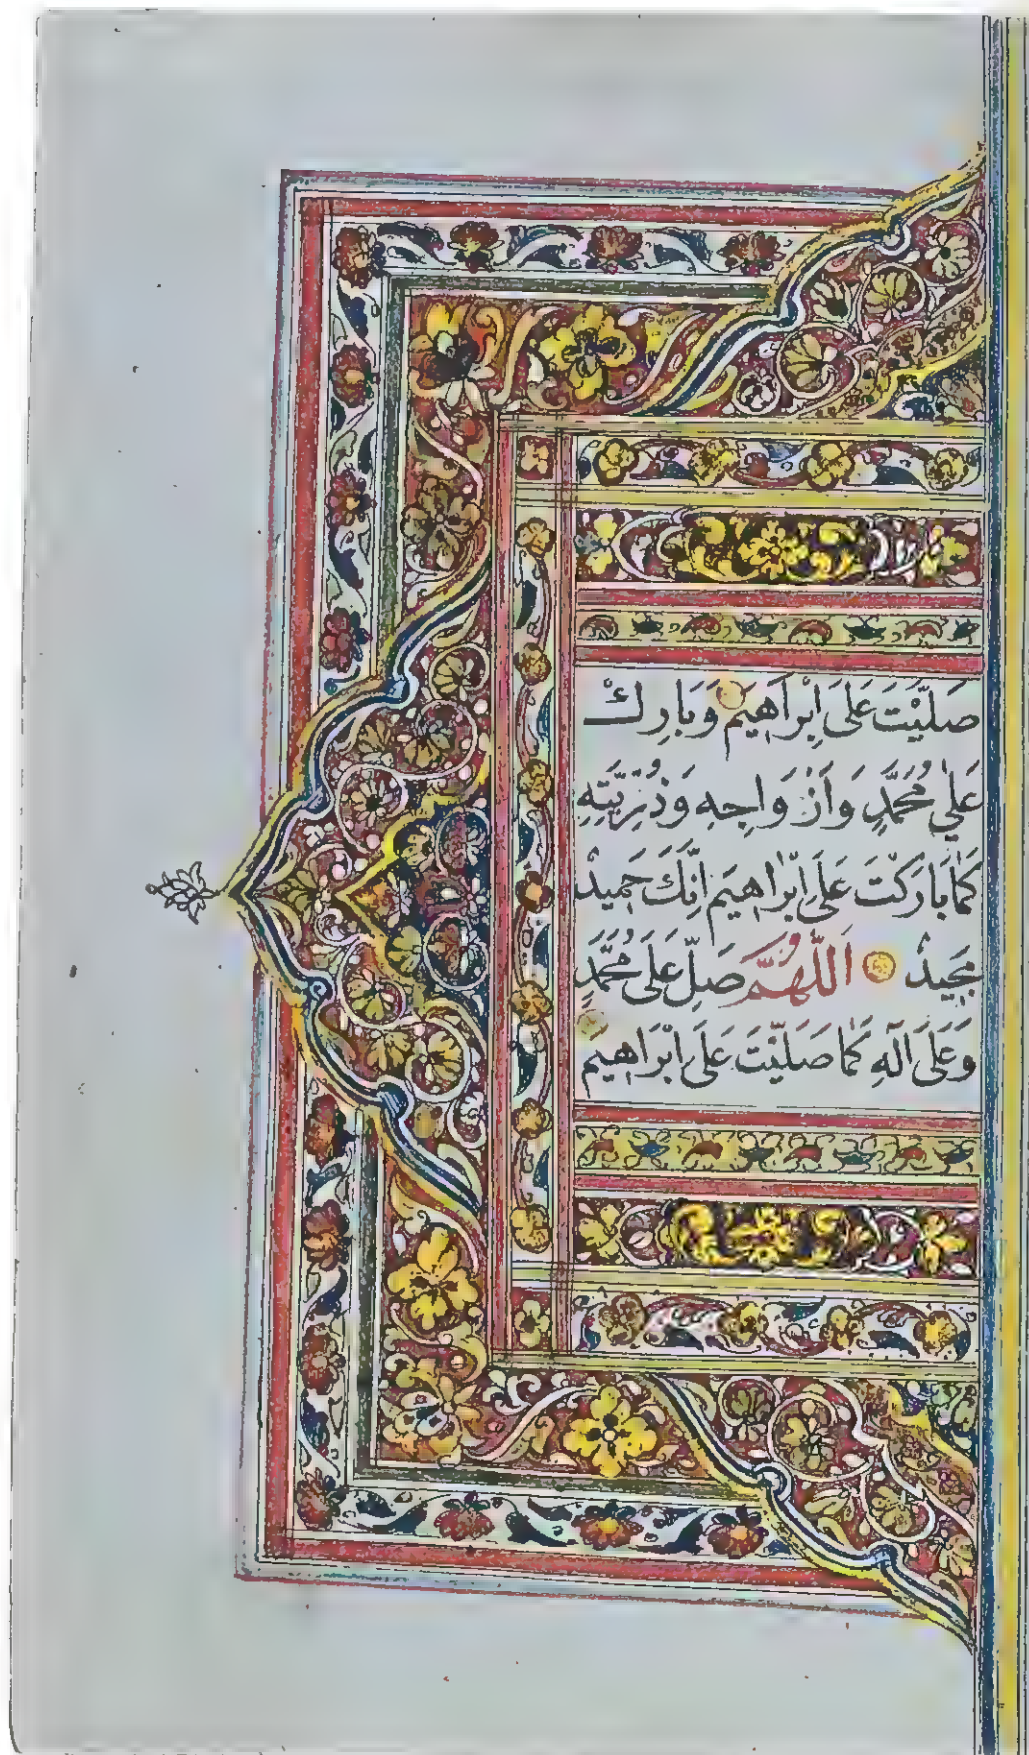 صَلَّيْتَ عَلَى اِبْرَاهِيمَ وَبَارِكْ
عَلٰي مُحَمَّدٍ وَاَزْوَاجِهِ وَذُرِّيَّتِهِ
كَمَا بَارَكْتَ عَلَى اِبْرَاهِيمَ اِنَّكَ حَمِيدٌ
مَجِيدٌ اَللّٰهُمَّ صَلِّ عَلَى مُحَمَّدٍ
وَعَلَى آلِهِ كَمَا صَلَّيْتَ عَلَى اِبْرَاهِيمَ